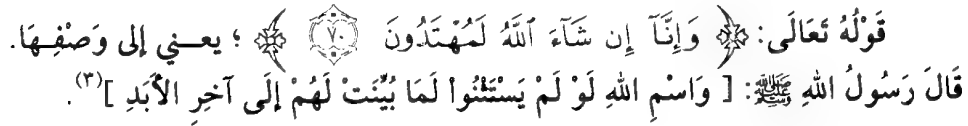 قَوْلُهُ تَعَالَى: ﴿ وَإِنَّآ إِن شَآءَ ٱللَّهُ لَمُهْتَدُونَ ٧٠ ﴾ ؛ يعني إلى وَصْفِهَا.
قَالَ رَسُولُ اللهِ ﷺ: [ وَاسْمِ اللهِ لَوْ لَمْ يَسْتَثْنُواْ لَمَا بُيِّنَتْ لَهُمْ إلَى آخِرِ الأَبَدِ ](٣).